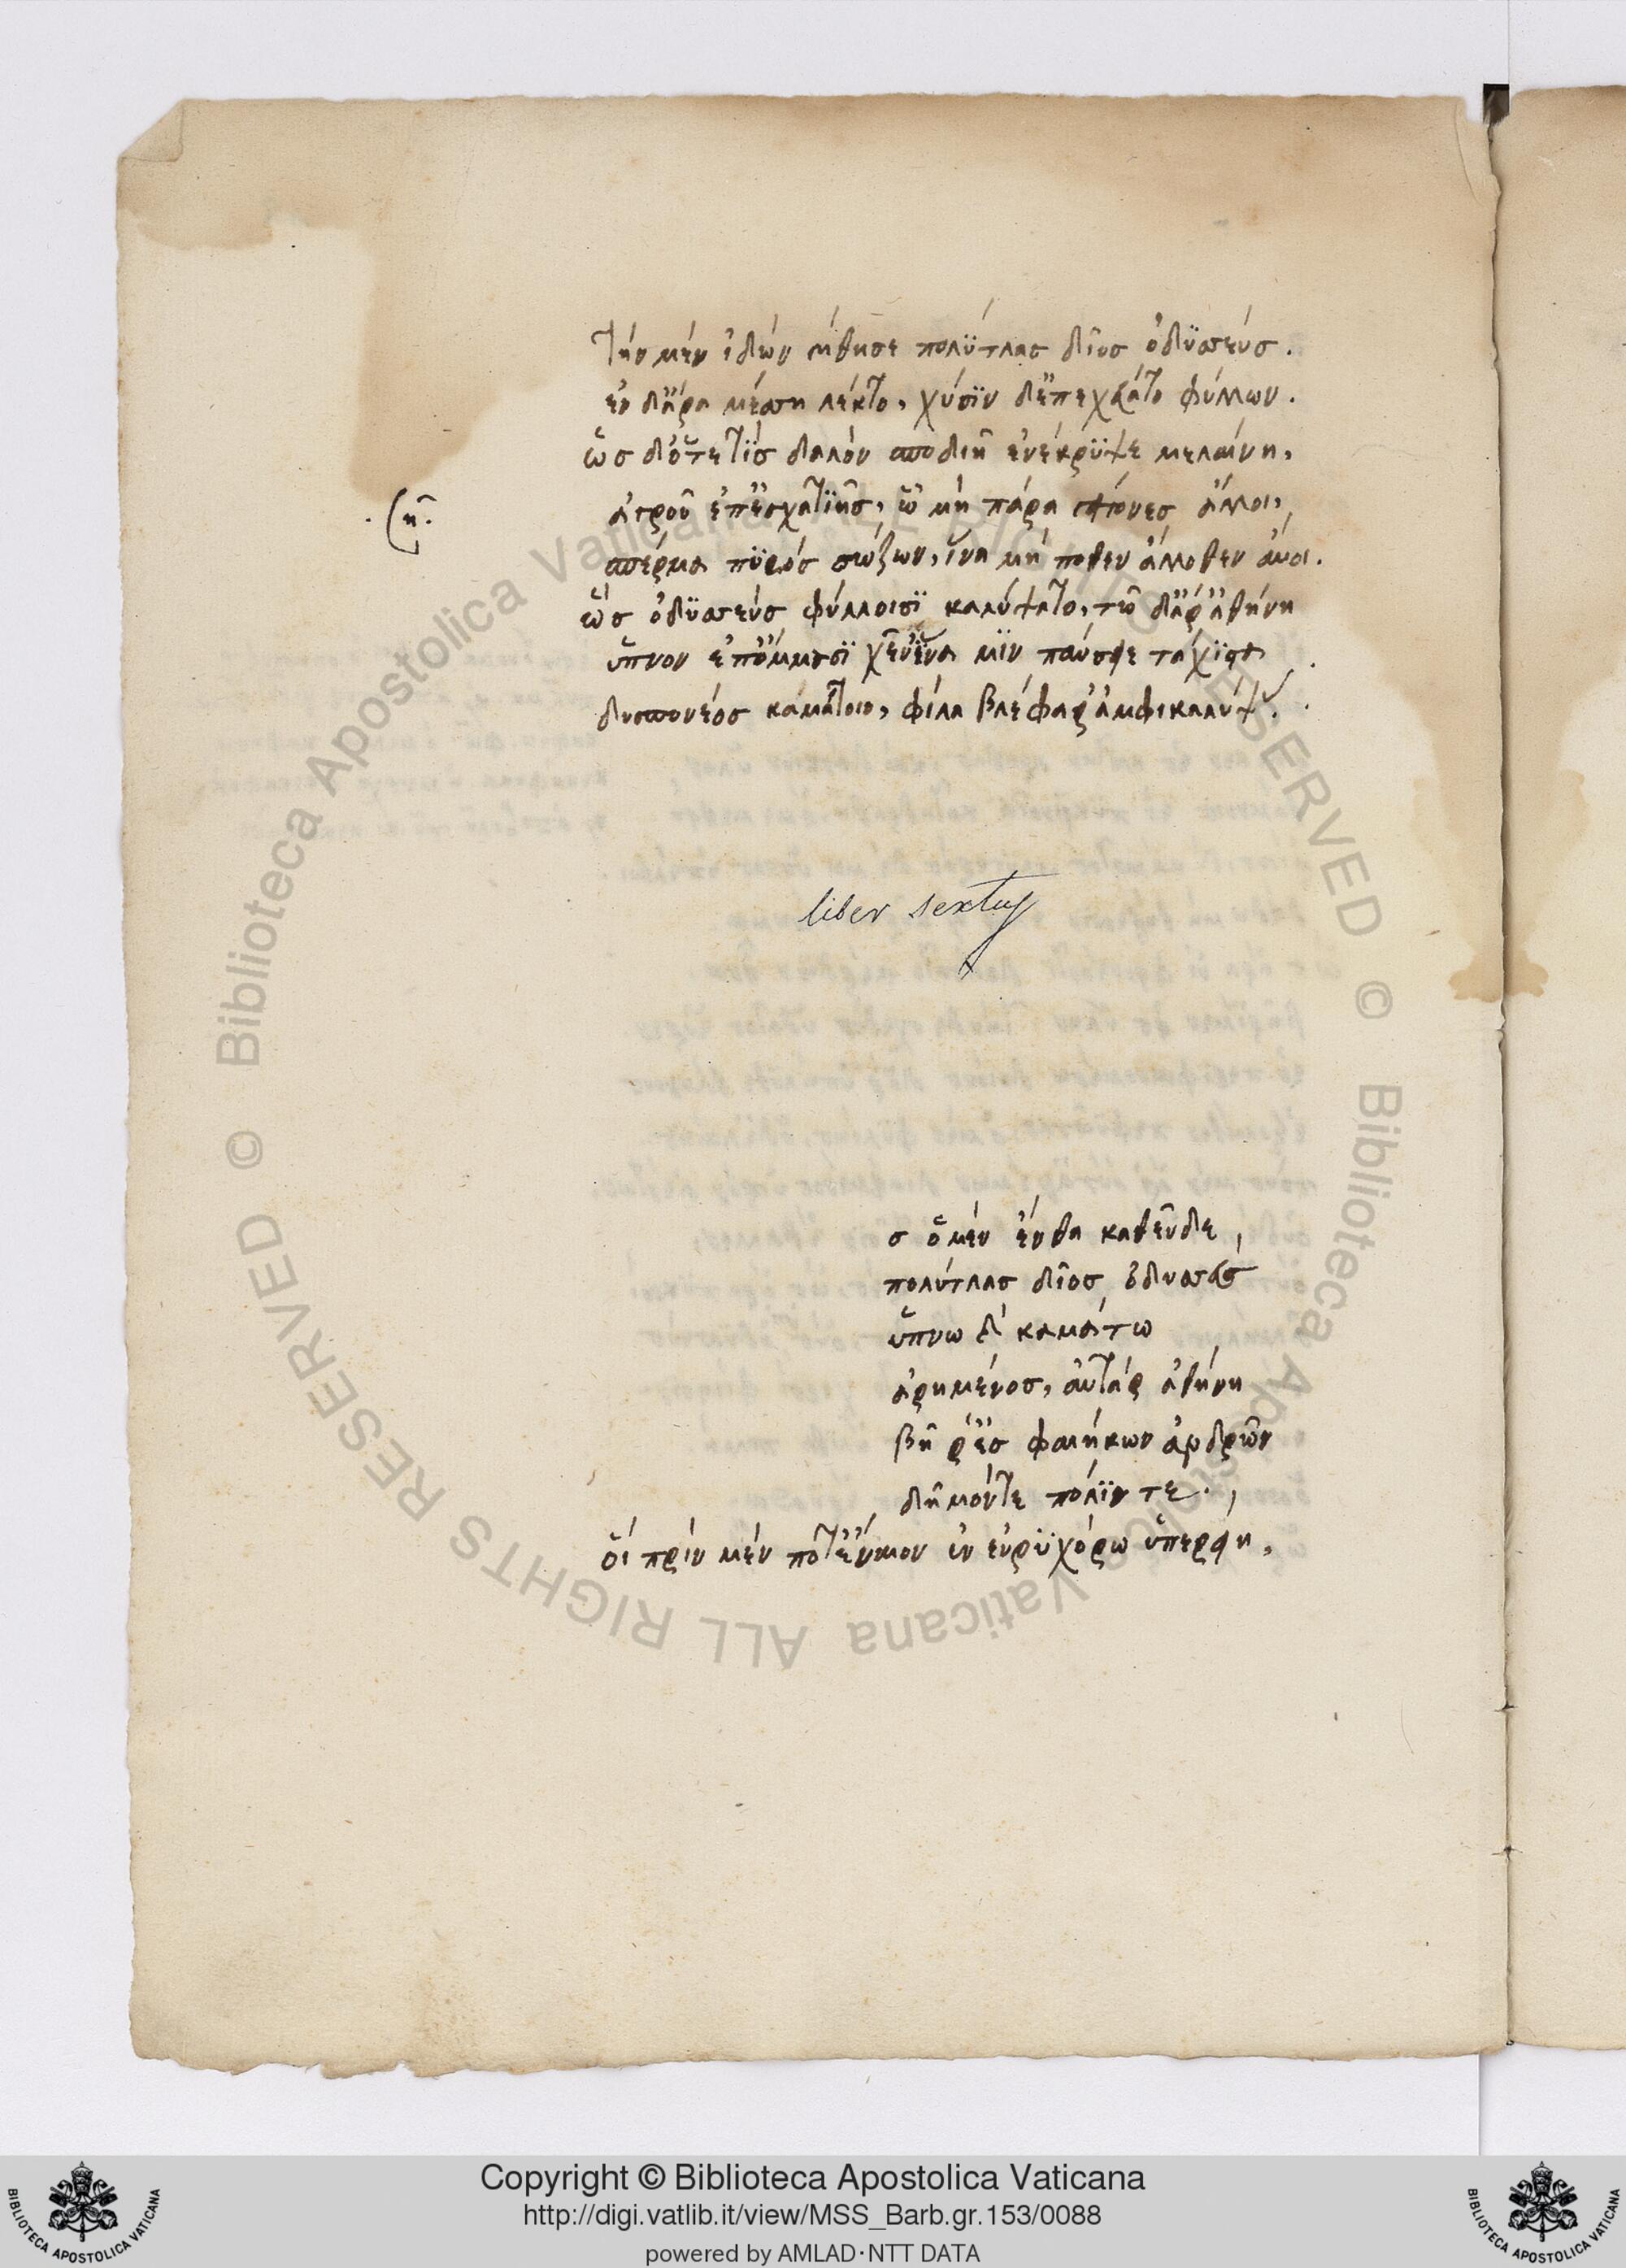 Τὴν μὲν ἰδὼν γήθησε πολύτλας δῖος ὀδϋσσεύς.
ἐν δ᾽ἄρα μέσση λέκτο, χύσϊν δ᾽ἐπεχεύατο φύλλων.
ὡς δ᾽ὅτε τὶς δαλὸν σποδιῇ ἐνέκρϋψε μελαίνη,
ἀγροῦ ἐπ᾽ἐσχατϊῆς, ὧ μὴ πάρα γείτονες ἄλλοι,
σπέρμα πϋρὸς σώζων, ἵνα μή ποθεν ἄλλοθεν αὔοι.
ὣς ὀδϋσσεὺς φύλλοισϊ καλύψατο, τῶ δ᾽ἄρ᾽ἀθήνη
ὕπνον ἐπ᾽ὄμμασϊ χεῦ᾽ἵνα μϊν παύσειε τάχϊστα
δυσπονέος καμάτοιο, φίλα βλέφαρ᾽ἀμφικαλύψας.
liber sextus
ς ὁ μὲν ἔνθα καθεῦδε,
πολύτλας δῖος ὀδυσσεὺς
ὕπνω καὶ καμάτω
ἀρημένος, αὐτὰρ ἀθήνη
βῆ ῥ᾽ἐς φαιήκων ἀνδρῶν
δῆμόν τε πόλϊν τε.
οἳ πρὶν μέν ποτ᾽ἔναιον ἐν εὐρϋχόρω ὑπερείη,
Copyright © Biblioteca Apostolica Vaticana
http://digi.vatlib.it/view/MSS_Barb.gr.153/0088
powered by AMLAD·NTT DATA
© Biblioteca Apostolica Vaticana ALL RIGHTS RESERVED
© Biblioteca Apostolica Vaticana ALL RIGHTS RESERVED
BIBLIOTECA APOSTOLICA VATICANA
BIBLIOTECA APOSTOLICA VATICANA